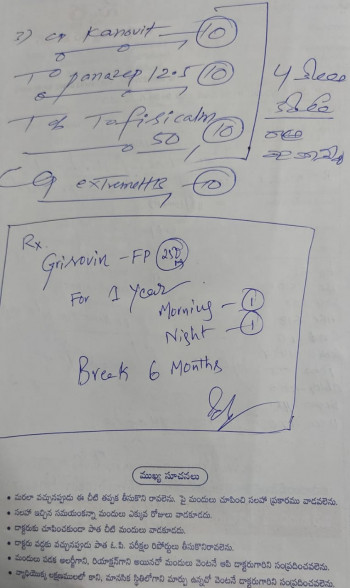 2) cap Kanovit — 10
T panazep 12.5 10
T Tafisicalm 50 10
Cap exTremeHB — 10
Rx.
Grisovin - FP 250
For 1 Year
Morning - 1
Night - 1
Break 6 Months
ముఖ్య సూచనలు
• మరలా వచ్చునప్పుడు ఈ చీటి తప్పక తీసుకొని రావలెను. పై మందులు చూపించి సలహా ప్రకారము వాడవలెను.
• సలహా ఇచ్చిన సమయంకన్నా మందులు ఎక్కువ రోజులు వాడకూడదు.
• డాక్టరుకు చూపించకుండా పాత చీటి మందులు వాడకూడదు.
• డాక్టరు వద్దకు వచ్చునప్పుడు పాత ఓ.పి. పరీక్షల రిపోర్టులు తీసుకొనిరావలెను.
• మందులు పడక అలర్జీగాని, రియాక్షన్‌గాని అయినచో మందులు వెంటనే ఆపి డాక్టరుగారిని సంప్రదించవలెను.
• వ్యాధియొక్క లక్షణములలో కాని, మానసిక స్థితిలోగాని మార్పు ఉన్నచో వెంటనే డాక్టరుగారిని సంప్రదించవలెను.